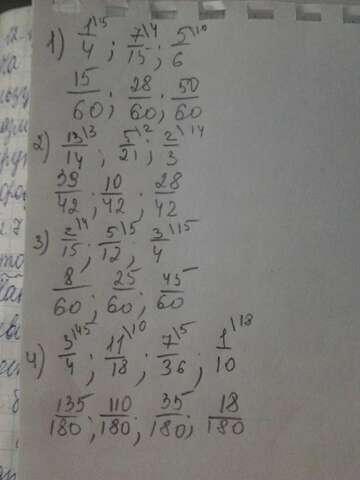 1) 1/4\15 ; 7/15\4 ; 5/6\10
15/60 ; 28/60 ; 50/60
2) 13/14\3 ; 5/21\2 ; 2/3\14
39/42 ; 10/42 ; 28/42
3) 2/15\4 ; 5/12\5 ; 3/4\15
8/60 ; 25/60 ; 45/60
4) 3/4\45 ; 11/18\10 ; 7/36\5 ; 1/10\18
135/180 ; 110/180 ; 35/180 ; 18/180